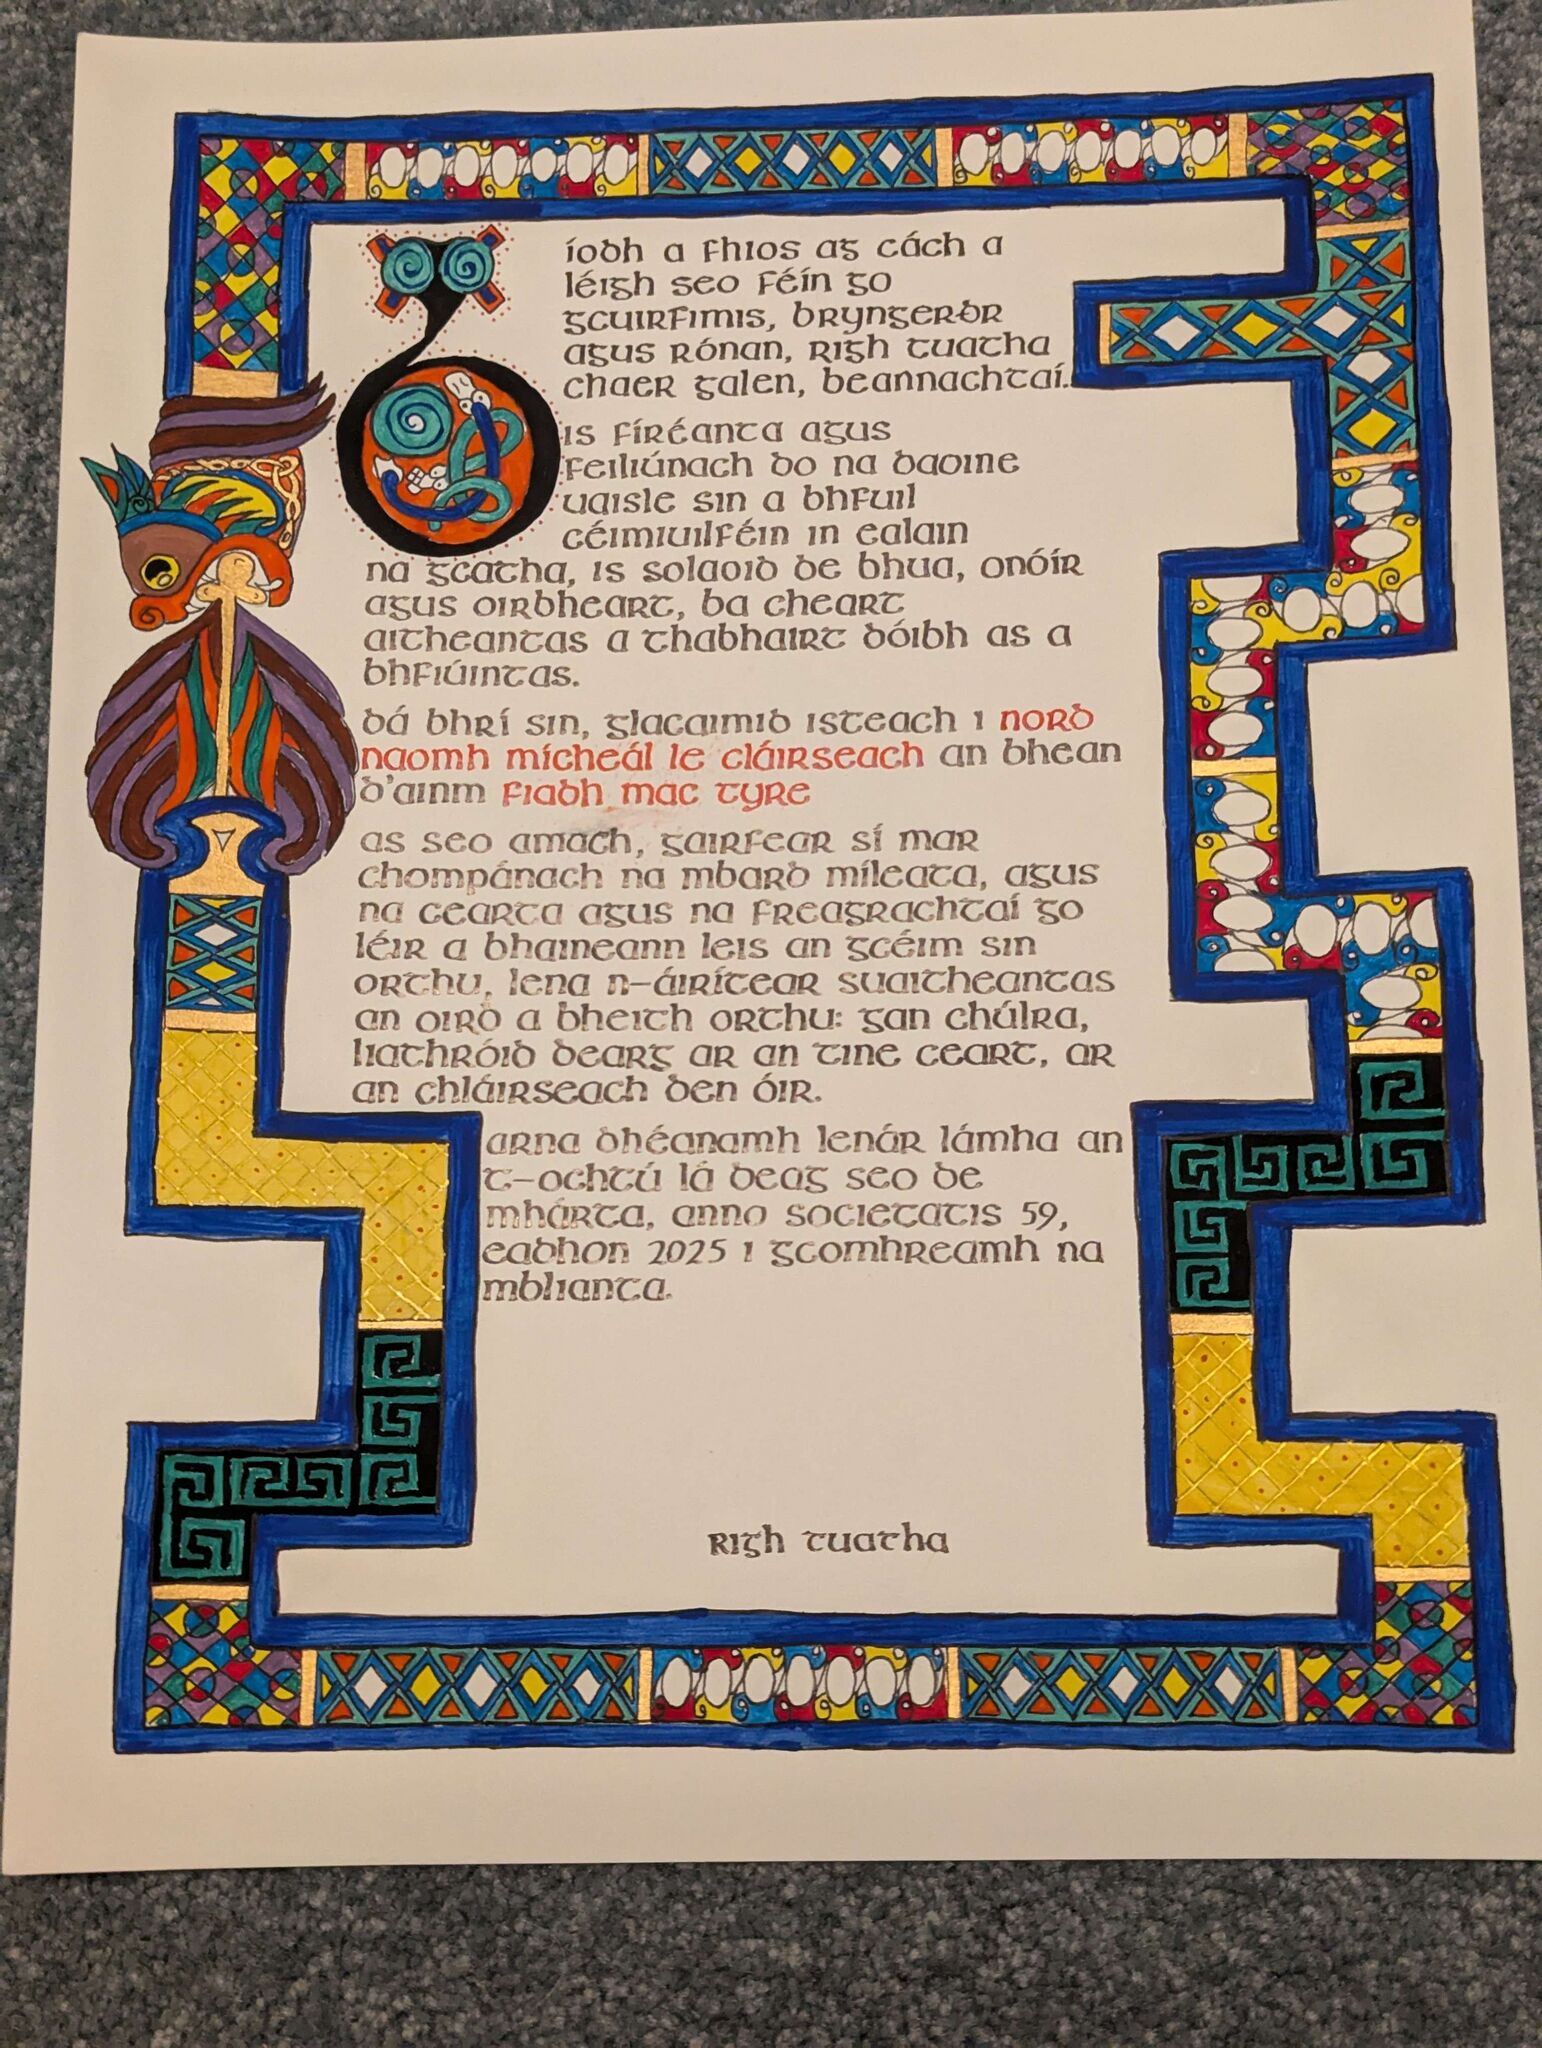 Bíodh a fhios ag cách a
léigh seo féin go
gcuirfimis, Bryngerðr
agus Rónan, Righ Tuatha
Chaer Galen, beannachtaí.
Is fíréanta agus
feiliúnach do na daoine
uaisle sin a bhfuil
céimiuilféin in ealain
na gcatha, is solaoid de bhua, onóir
agus oirbheart, ba cheart
aitheantas a thabhairt dóibh as a
bhfiúintas.
Dá bhrí sin, glacaimid isteach i nord
naomh mícheál le cláirseach an bhean
d'ainm Fiadh Mac Tyre
As seo amach, gairfear sí mar
chompánach na mbard míleata, agus
na cearta agus na freagrachtaí go
léir a bhaineann leis an gcéim sin
orthu, lena n-áirítear suaitheantas
an oird a bheith orthu: gan chúlra,
liathróid dearg ar an tine ceart, ar
an chláirseach den óir.
Arna dhéanamh lenár lámha an
t-ochtú lá deag seo de
mhárta, anno societatis 59,
eadhon 2025 i gcomhreamh na
mblianta.
Righ Tuatha